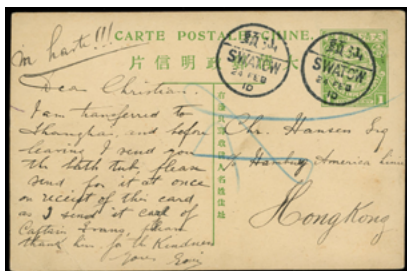 in haste!!!
CARTE POSTALE CHINE.
片信明政
SWATOW
24 FEB
10
SWATOW
24 FEB
10
1
Dear Christian.
I am transferred to
Shanghai, and before
leaving I send you
the bath tub, please
send for it at once
on receipt of this card
as I send it care of
Captain please
thank him for the Kindness
yours
Chr. Hansen Esq
Hamburg America Linie
HongKong